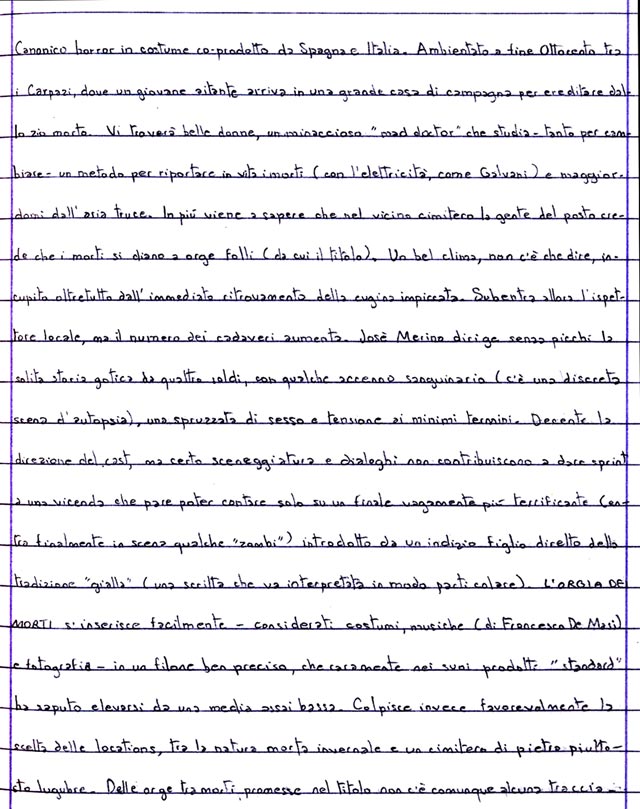 Canonico horror in costume co-prodotto da Spagna e Italia. Ambientato a fine Ottocento tra
i Carpazi, dove un giovane aitante arriva in una grande casa di campagna per ereditare dal-
lo zio morto. Vi troverà belle donne, un minaccioso "mad doctor" che studia - tanto per cam-
biare - un metodo per riportare in vita i morti (con l'elettricità, come Galvani) e maggior-
domi dall'aria truce. In più viene a sapere che nel vicino cimitero la gente del posto cre-
de che i morti si diano a orge folli (da cui il titolo). Un bel clima, non c'è che dire, in-
cupito oltretutto dall'immediato ritrovamento della cugina impiccata. Subentra allora l'ispet-
tore locale, ma il numero dei cadaveri aumenta. Josè Merino dirige senza picchi la
solita storia gotica da quattro soldi, con qualche accenno sanguinario (c'è una discreta
scena d'autopsia), una spruzzata di sesso e tensione ai minimi termini. Decente la
direzione del cast, ma certo sceneggiatura e dialoghi non contribuiscono a dare sprint
a una vicenda che pare poter contare solo su un finale vagamente più terrificante (en-
tra finalmente in scena qualche "zombi") introdotto da un indizio figlio diretto della
tradizione "gialla" (una scritta che va interpretata in modo particolare). L'ORGIA DEI
MORTI s'inserisce facilmente - considerati costumi, musiche (di Francesco De Masi)
e fotografia - in un filone ben preciso, che raramente nei suoi prodotti "standard"
ha saputo elevarsi da una media assai bassa. Colpisce invece favorevolmente la
scelta delle locations, tra la natura morta invernale e un cimitero di pietra piutto-
sto lugubre. Delle orge tra morti promesse nel titolo non c'è comunque alcuna traccia...